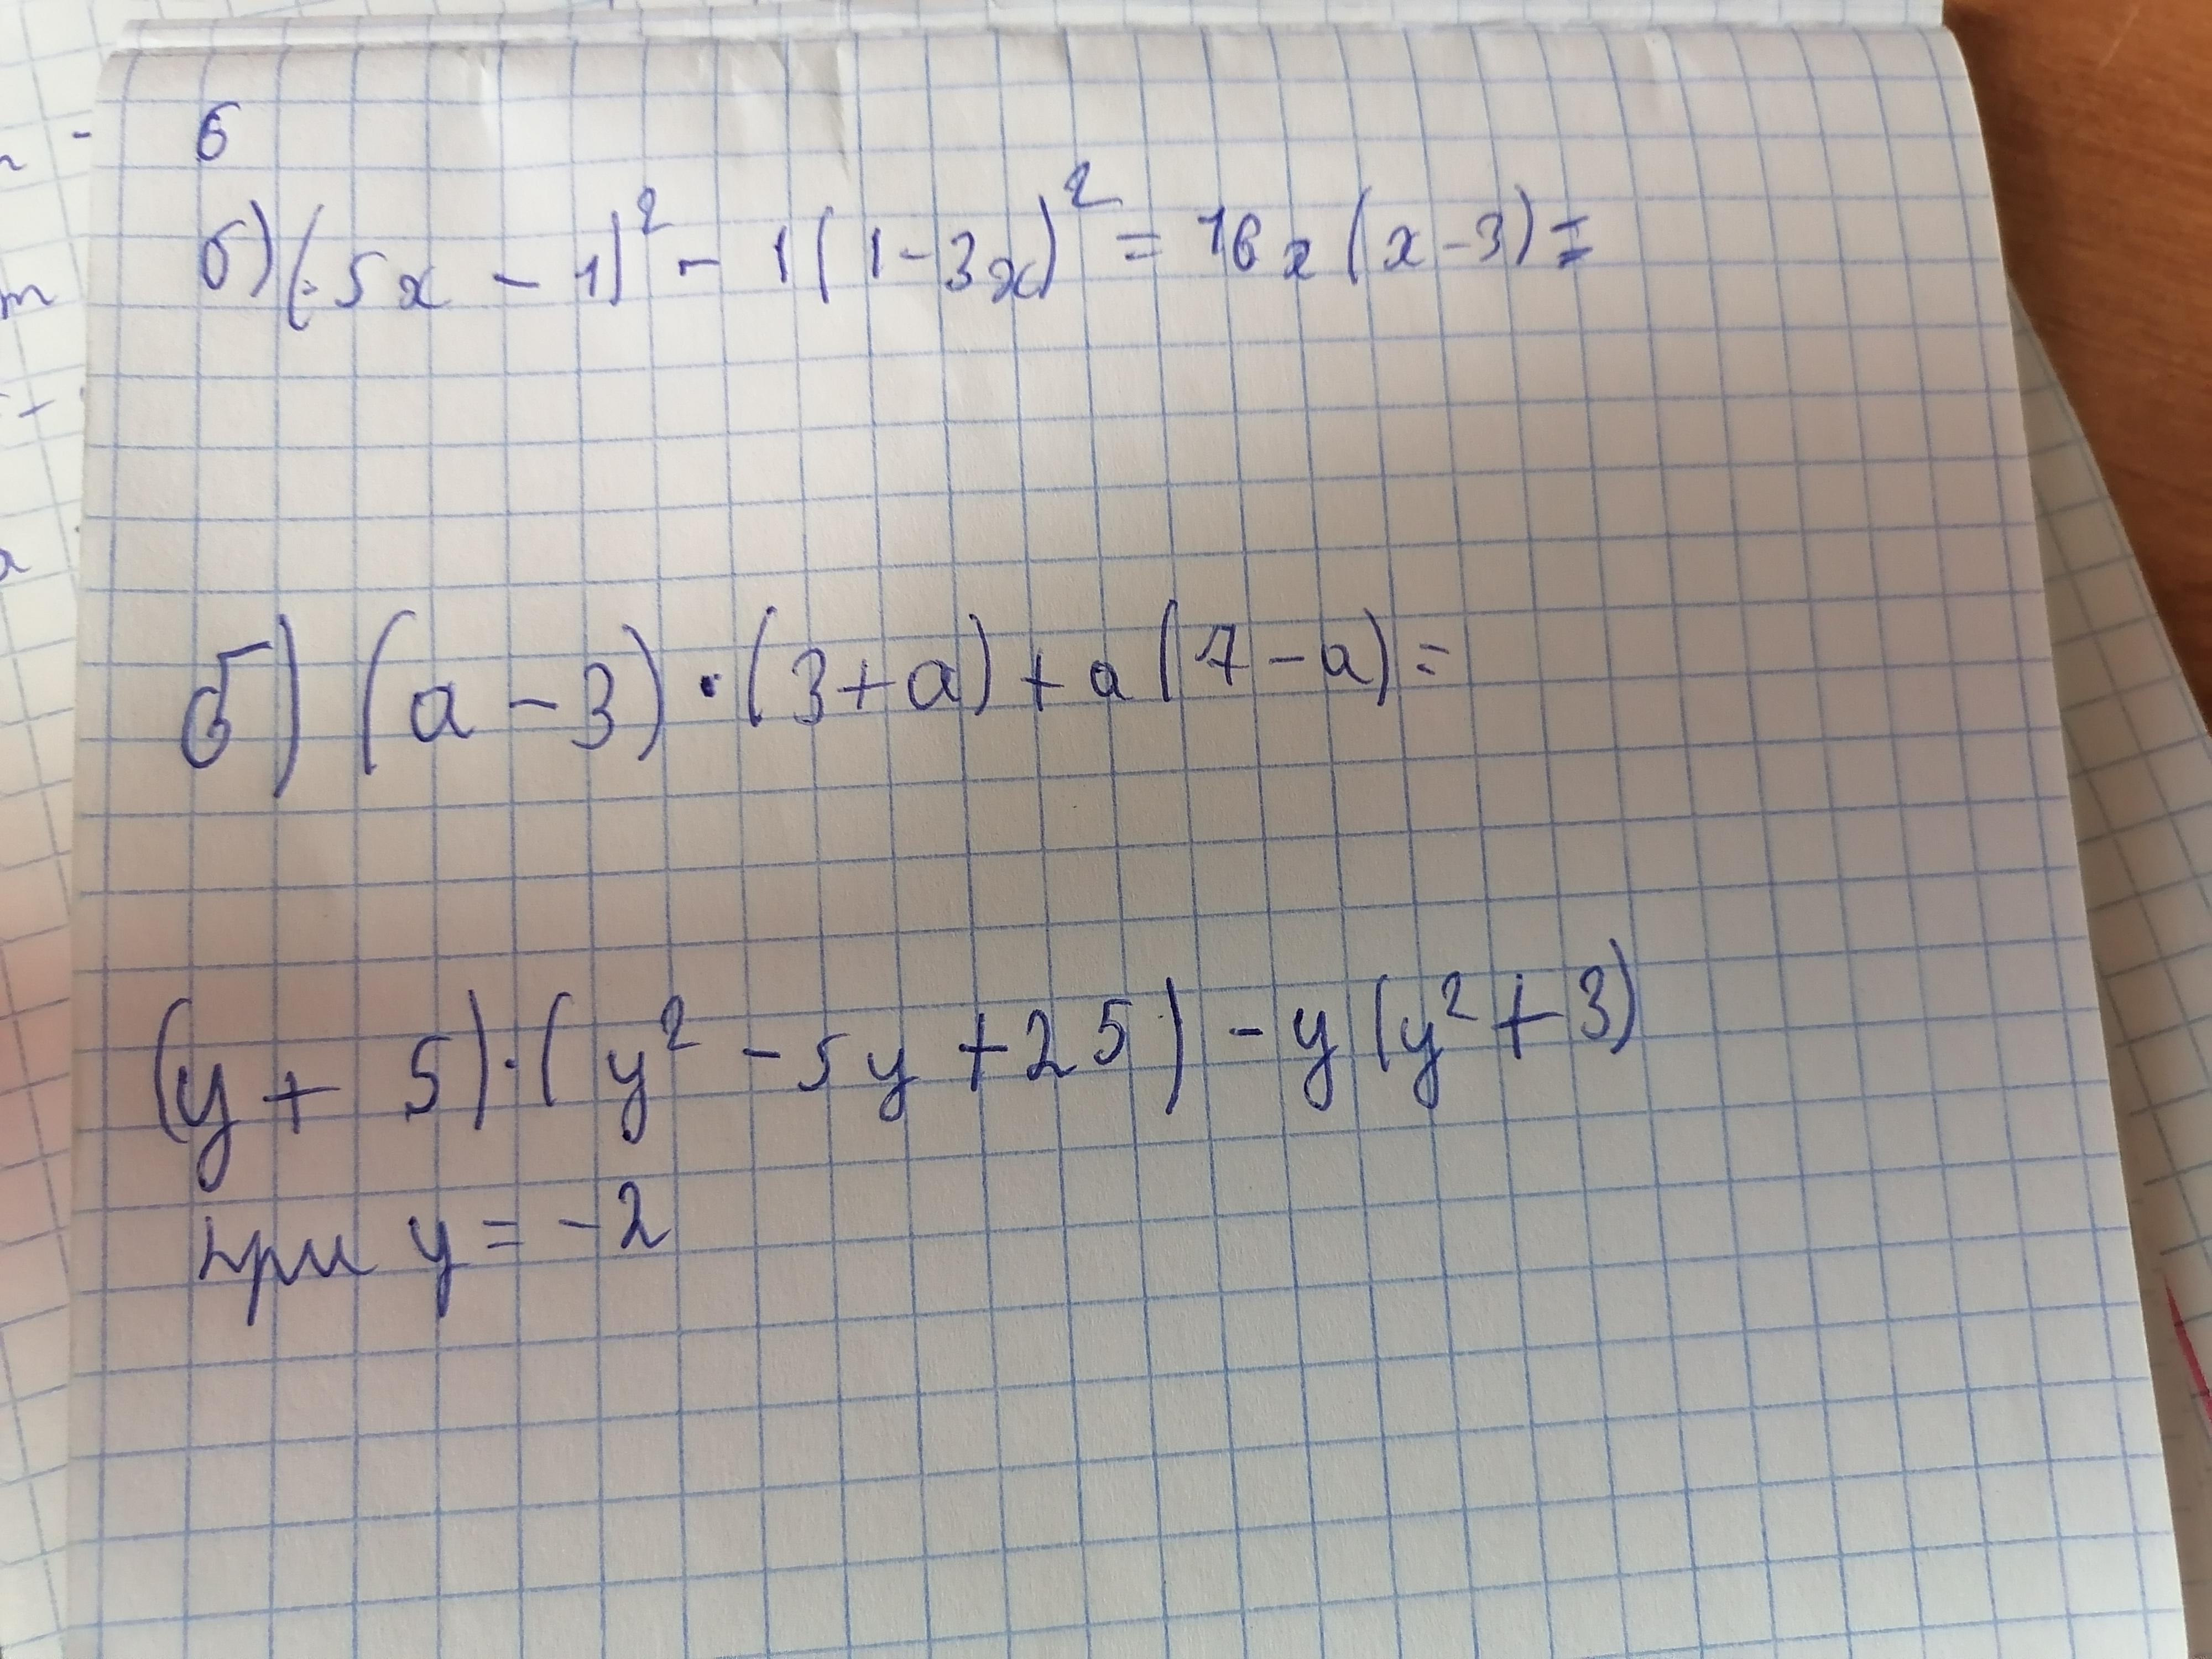 6
б) (-5x - 1)² - 1(1-3x)² = 16x(x-3)=
б) (a-3)·(3+a)+a(7-a)=
(y+5)·(y²-5y+25)-y(y²+3)
при y = -2